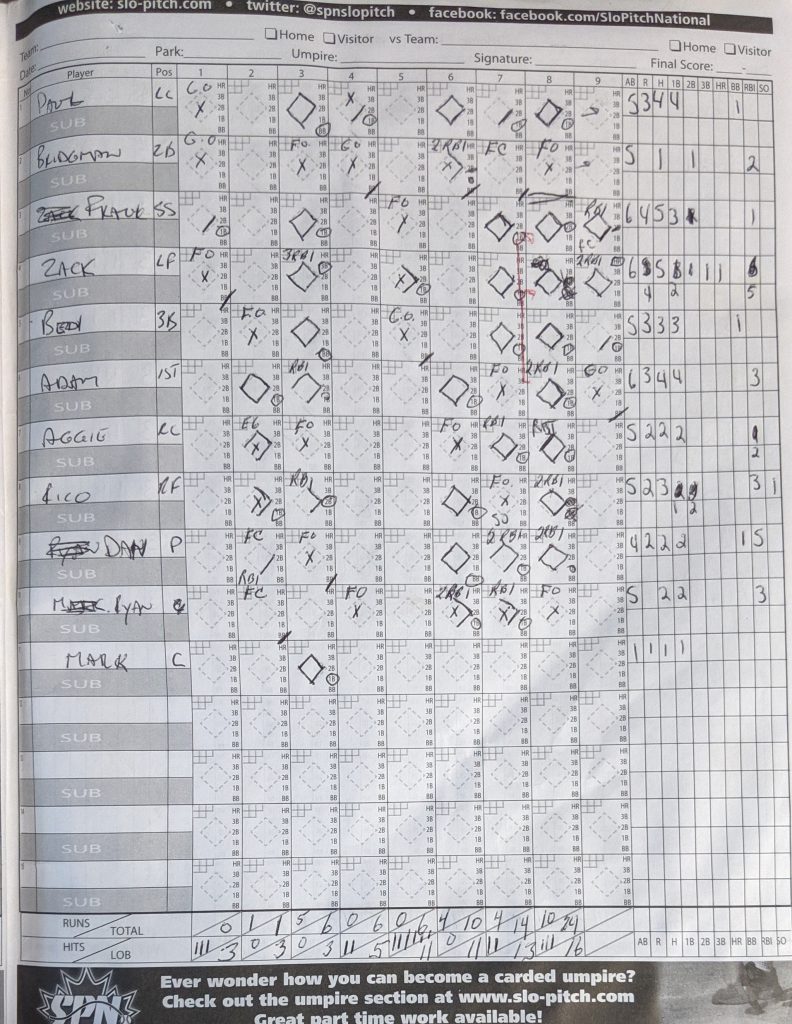 website: slo-pitch.com • twitter: @spnslopitch • facebook: facebook.com/SloPitchNational
Team: Home Visitor vs Team: Home Visitor
Date: Park: Umpire: Signature: Final Score: -
Player Pos 1 2 3 4 5 6 7 8 9 AB R H 1B 2B 3B HR BB RBI SO
PAUL LC G.O 5 3 4 4 1
SUB
BRIDGMAN 2B G.O FO GO 2RBI FC FO 5 1 1 2
SUB
FRANK SS FO RBI FC 6 4 5 3 1
SUB
ZACK LF FO 3RBI 2RBI 6 5 1 1 1
SUB 4 2 5
BEDI 3B F.O. G.O. 5 3 3 3 1
SUB
ADAM 1ST RBI FO 2RBI GO 6 3 4 4 3
SUB
AGGIE RC E6 FO FO RBI RBI 5 2 2 2
SUB 2
RICO RF RBI FO 2RBI 5 2 3 3 1
SUB SO 1 2
DAN P FC FO 2RBI 2RBI 4 2 2 2 1 5
SUB RBI
RYAN FC FO 2RBI RBI FO 5 2 2 3
SUB
MARK C 1 1 1 1
SUB
SUB
SUB
SUB
SUB
RUNS TOTAL 0 1 1 5 6 0 6 0 6 4 10 4 14 10 24
HITS LOB 3 0 3 0 3 5 11 0 11 13 16 AB R H 1B 2B 3B HR BB RBI SO
SPN
Ever wonder how you can become a carded umpire?
Check out the umpire section at www.slo-pitch.com
Great part time work available!